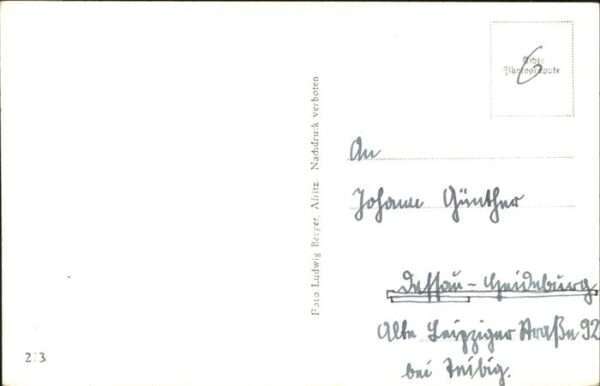 Foto Ludwig Berger, Aflitz Nachdruck verboten
6
Echte
Photographie
An
Johann Günther
Dessau-Heideburg
Alte Leipziger Straße 92
bei Teibig.
2/3